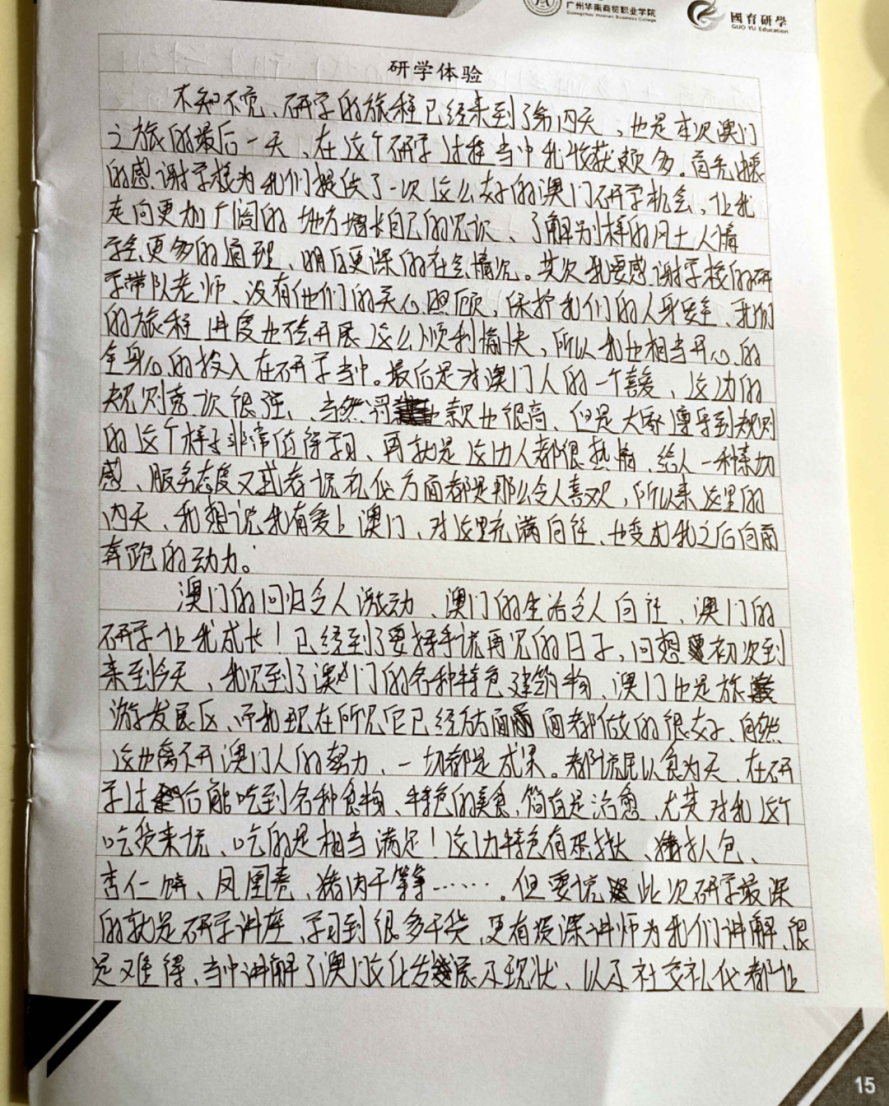 广州华南商贸职业学院
Guangzhou Huanan Business College
國育研學
GUO YU Education
研学体验
不知不觉、研学的旅程已经来到了第四天，也是本次澳门
之旅的最后一天、在这个研学过程当中我收获颇多。首先由衷
的感谢学校为我们提供了一次这么好的澳门研学机会、让我
走向更加广阔的地方增长自己的见识、了解别样的风土人情
学会更多的道理、明白更深的社会情况。其次我要感谢学校的研
学带队老师、没有他们的关心照顾，保护我们的人身安全、我们
的旅程进度也会开展这么顺利愉快，所以我也相当开心的
全身心的投入在研学当中。最后是对澳门人的一个喜爱、这边的
规则意识很强、当然罚款也很高、但是大家遵守到规则
的这个样子非常值得学习、再就是这边人都很热情、给人一种亲切
感、服务态度又或者说礼仪方面都是那么令人喜欢，所以来这里的
四天、我想说我有爱上澳门、对这里充满向往、也变成我之后向前
奔跑的动力。
澳门的回归令人激动、澳门的生活令人向往、澳门的
研学让我成长！已经到了要挥手说再见的日子，回想初次到
来到今天、我见到了澳门的各种特色建筑物、澳门也是旅
游发展区、而我现在所见它已经方面面都做的很好、自然
这也离不开澳门人的努力、一切都是成果。都说民以食为天、在研
学过后能吃到各种食物、特色的美食、简直是治愈、尤其对我这个
吃货来说、吃的是相当满足！这边特色有蛋挞、猪扒包、
杏仁饼、凤凰卷、猪肉干等等……。但要说此次研学最深
的就是研学讲座、学习到很多干货、更有资深讲师为我们讲解、很
是难得、当中讲解了澳门文化发展及现状、以及社交礼仪都让
15